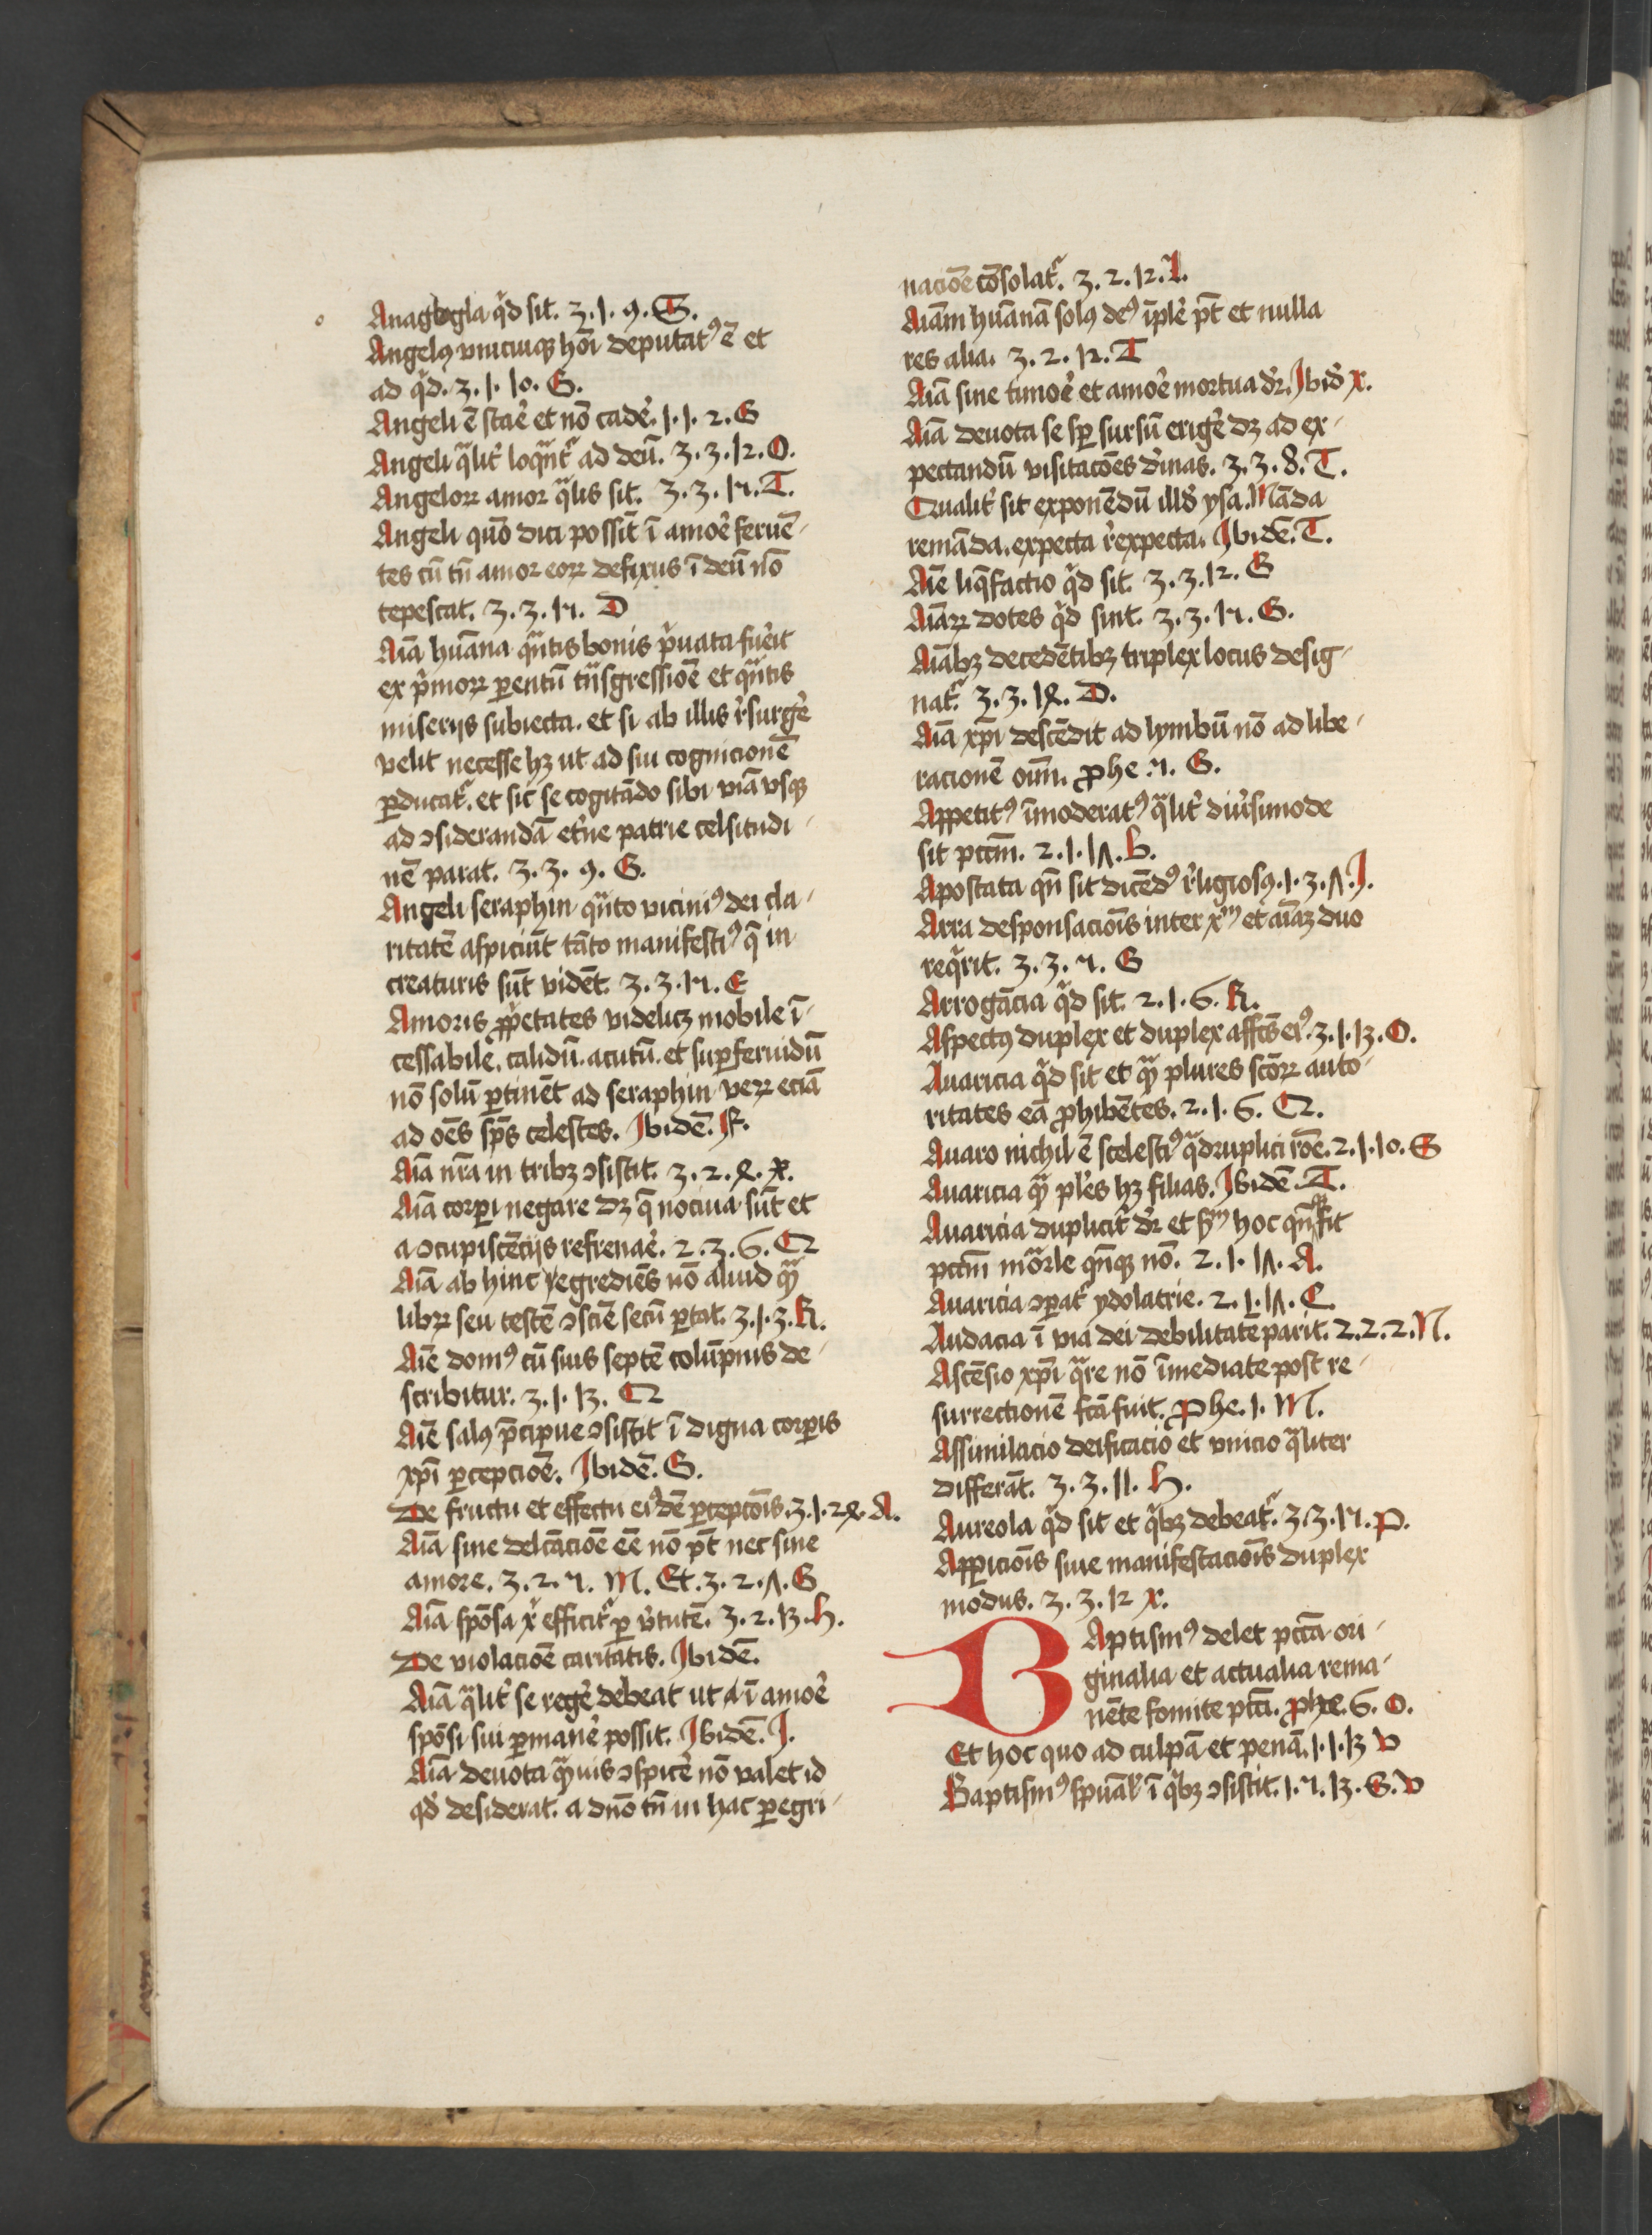 Anagogia qͥd sit. 3. 1. 9. S.
Angelꝰ vnicuiqꝫ hōi deputatꝰ ē et
ad qͥd. 3. 1. 10. G.
Angeli ē stāe et nō cadē. 1. 1. 2. G
Angeli qͣlit̉ loqͣntᷣ ad deū. 3. 3. 12. O.
Angeloꝝ amor qͣlis sit. 3. 3. 14. T.
Angeli quō dici possīt ī amoē feruē-
tes cū tn̄ amor eoꝝ defixus ī deū nō
tepescat. 3. 3. 14. D
Aīa hūana qͣntis bonis pͥuata fuẻit
ex pͥmoꝝ ꝑentū tͣnsgressiōē et qͣntis
miserijs subiecta. et si ab illis rẻsurgẻ
velit necesse hꝫ ut ad sui cognicionē
ꝑducatᷣ. et sic se cogitādo sibi viā vsqꝫ
ad ↄsiderandā et̉ne patrie celsitudi-
nē parat. 3. 3. 9. G.
Angeli seraphin qͣnto viciniꝰ dei cla-
ritatē aspiciūt tāto manifestiꝰ q̄ in
creaturis sūt vidēt. 3. 3. 14. E
Amoris ꝓpͥetates videlicꝫ mobile ī-
cessabile. calidū. acutū. et suꝑferuidū
nō solū ꝑtinēt ad seraphin veꝝ eciā
ad oēs sp̄s celestes. Ibidē. F.
Aīa nr̄a in tribꝫ ↄsistit. 3. 2. 4. X.
Aīa corꝑi negare dꝫ q̄ nociua sūt et
a ↄcupiscēcijs refrenaẻ. 2. 3. 6. Q
Aīa ab hinc egrediēs nō aliud qͣꝫ
libꝝ seu testē ↄsciē secū ꝑtat. 3. 1. 3. R.
Aīe domꝰ cū suis septē colūpnis de-
scribitur. 3. 1. 13. Q
Aīe salꝰ p̄cipue ↄsistit ī digna corꝑis
xp̄i ꝑcepciōē. Ibidē. S.
De fructu et effectu eiꝰdē ꝑcepcōis. 3. 1. 24. A.
Aīa sine delc̄aciōe ēē nō pt̄ nec sine
amore. 3. 2. 7. M. Et. 3. 2. 7. G
Aīa spōsa xͥ efficitᷣ ꝑ v̉tutē. 3. 2. 13. h.
De violaciōe caritatis. Ibidē.
Aīa qͣlit̉ se regẻ debeat ut ī amoẻ
spōsi sui ꝑmanẻ possit. Ibidē. I.
Aīa deuota qͣꝫuis ↄspicẻ nō valet id
qd̉ desiderat. a dn̄o tn̄ in hac ꝑegri-
naciōe cōsolatᷣ. 3. 2. 12. I.
Aīam hūanā solꝰ deꝰ īplẻ pt̄ et nulla
res alia. 3. 2. 12. T
Aīa sine timoẻ et amoẻ mortua dr̄. Ibid̉ X.
Aīa deuota se sꝑ sursū erigẻ dꝫ ad ex-
pectandū visitacōes d̉inas. 3. 3. 8. T.
Qualit̉ sit exponēdū illd̉ ysa. Māda
remāda. expecta rẻexpecta. Ibidē. T.
Aīe liq̄factio qͥd sit. 3. 3. 12. G
Aīaꝝ dotes qͥd sint. 3. 3. 14. G.
Aīabꝫ decedētibꝫ triplex locus desig-
natᷣ. 3. 3. 14. D.
Aīa xp̄i descēdit ad lymbū nō ad libe-
racionē oīm. Phe. 7. G.
Appetitꝰ īmoderatꝰ qͣlit̉ diủsimode
sit pctm̄. 2. 1. 17. b.
Apostata qn̄ sit dicēdꝰ rẻligiosꝰ. 1. 3. 7. I.
Arra desponsaciōis inter xͫ et aīaꝫ duo
reqͥrit. 3. 3. 7. G
Arrogācia qͥd sit. 2. 1. 6. R.
Aspectꝰ duplex et duplex affc̄s eiꝰ. 3. 1. 13. O.
Auaricia qͥd sit et qͣꝫ plures sc̄oꝝ auto-
ritates eā ꝓhibētes. 2. 1. 6. Q.
Auaro nichil ē scelestiꝰ qͣdruplici rōe. 2. 1. 10. S
Auaricia qͣꝫ plẻs hꝫ filias. Ibidē. T.
Auaricia duplicit̉ dr̄ et sͫ hoc qn̄qꝫ fit
pctm̄ mōrͣle qn̄qꝫ nō. 2. 1. 17. A.
Auaricia ↄꝑatᷣ ydolatrie. 2. 1. 17. C.
Audacia ī via dei debilitatē parit. 2. 2. 2. N.
Ascēsio xp̄i qͣre nō īmediate post re-
surrectionē fc̄a fuit. Phe. 1. M.
Assimilacio deificacio et vnicio qͣliter
differāt. 3. 3. 11. h.
Aureola qͥd sit et qͥbꝫ debeatᷣ. 3. 3. 14. P.
Apꝑiciōis siue manifestaciōis duplex
modus. 3. 3. 12 X.
BAptismꝰ delet pctā ori-
ginalia et actualia rema-
nēte fomite pcti. Phe. 6. O.
Et hoc quo ad culpā et penā. 1. 1. 13 V
Baptismꝰ spūalˀ ī qͥbꝫ ↄsistit. 1. 7. 13. G. V